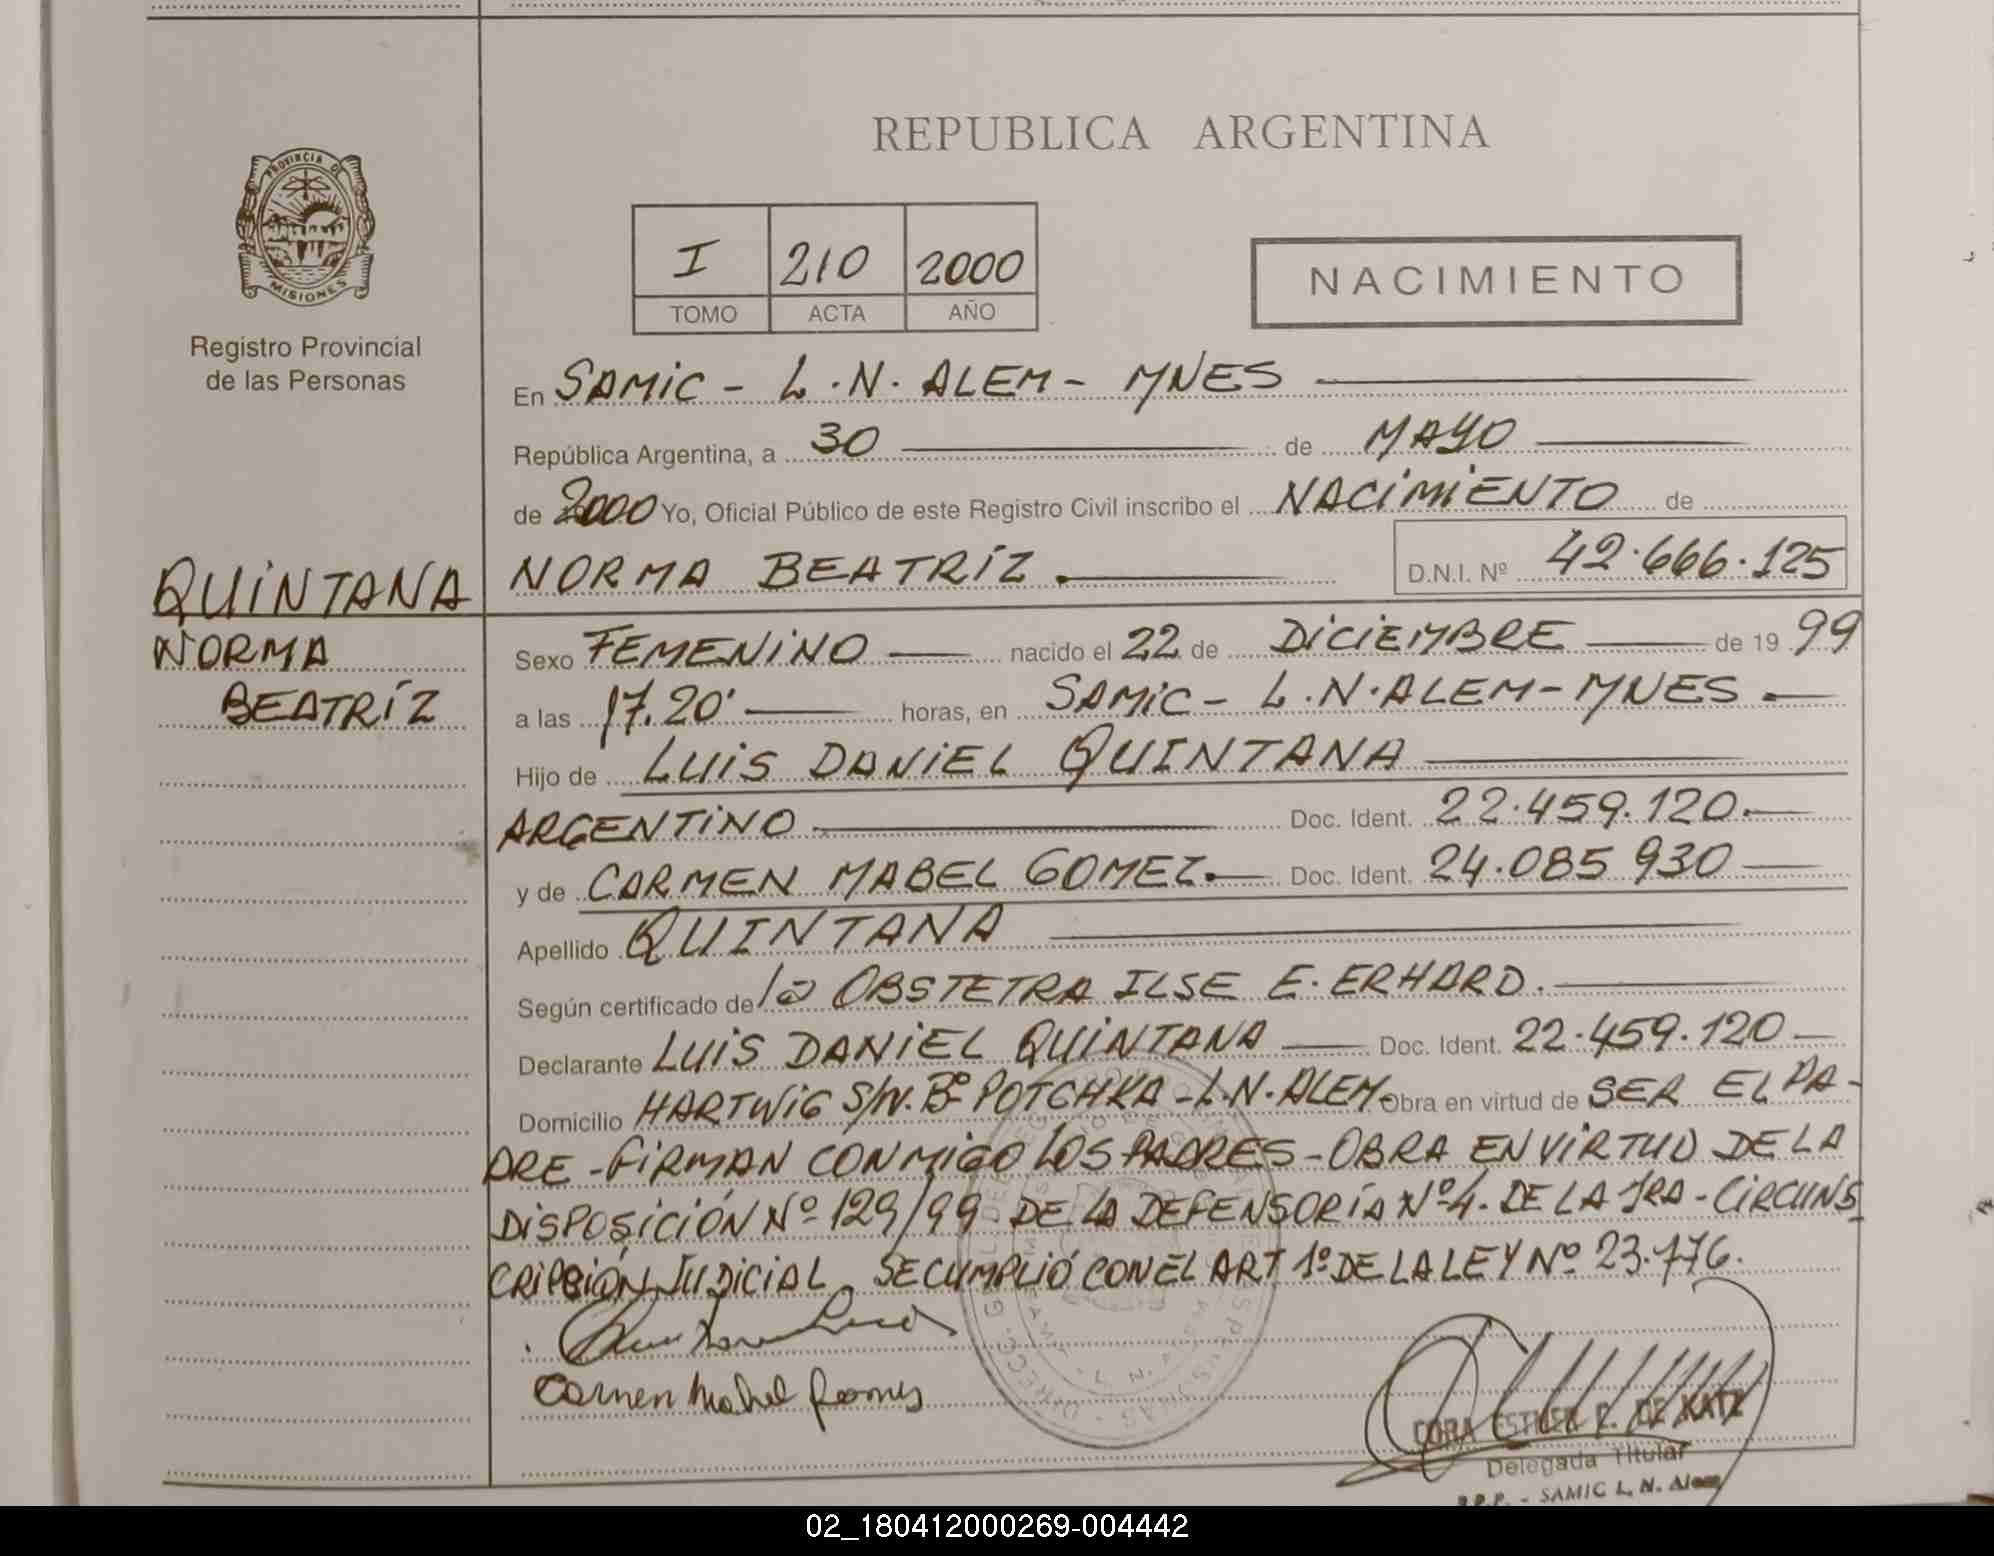 REPUBLICA ARGENTINA
PROVINCIA DE
MISIONES
Registro Provincial
de las Personas
I 210 2000
TOMO ACTA AÑO
NACIMIENTO
En SAMIC - L.N. ALEM - MNES
República Argentina, a 30 de MAYO
de 2000 Yo, Oficial Público de este Registro Civil inscribo el NACIMIENTO de
QUINTANA NORMA BEATRÍZ. D.N.I. Nº 42.666.125
NORMA
BEATRÍZ
Sexo FEMENINO nacido el 22 de DICIEMBRE de 19 99
a las 17.20' horas, en SAMIC - L.N. ALEM - MNES
Hijo de LUIS DANIEL QUINTANA
ARGENTINO Doc. Ident. 22.459.120.
y de CARMEN MABEL GOMEZ. Doc. Ident. 24.085 930
Apellido QUINTANA
Según certificado de la OBSTETRA ILSE E. ERHARD.
Declarante LUIS DANIEL QUINTANA Doc. Ident. 22.459.120
Domicilio HARTWIG S/N. Bº POTCHKA - L.N. ALEM. Obra en virtud de SER EL PA-
DRE - FIRMAN CONMIGO LOS PADRES - OBRA EN VIRTUD DE LA
DISPOSICIÓN Nº 129/99 DE LA DEFENSORÍA Nº 4. DE LA 1RA - CIRCUNS
CRIPCIÓN JUDICIAL. SE CUMPLIÓ CON EL ART 1º DE LA LEY Nº 23.776.
Carmen Mabel Gomez
CORA ESTHER P. DE KATZ
Delegada Titular
R.P.P. - SAMIC L. N. Alem
02_180412000269-004442